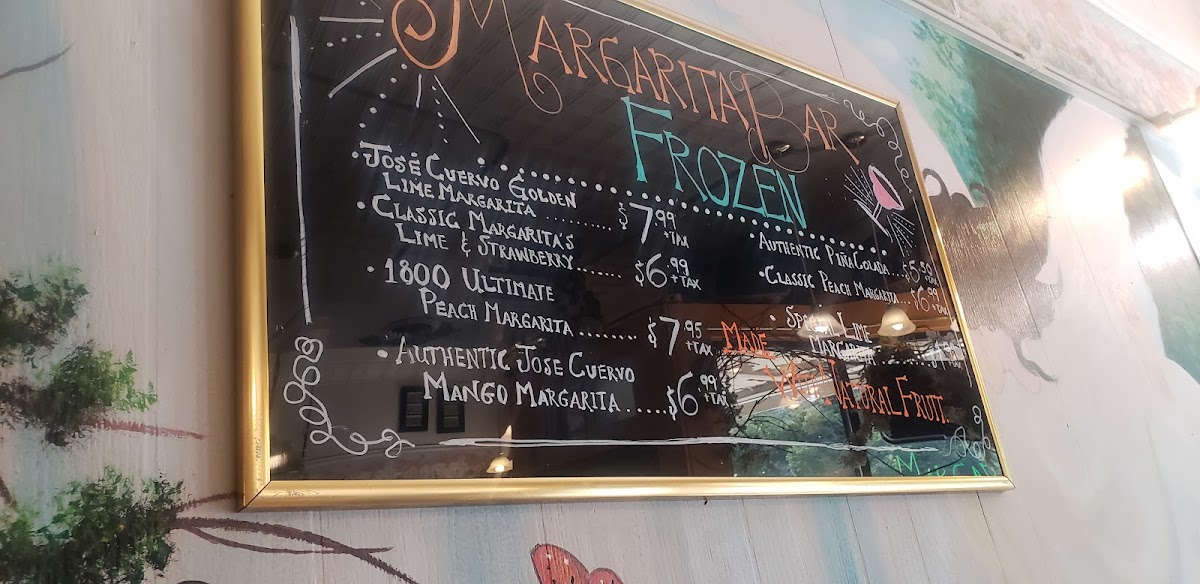 MARGARITA BAR
FROZEN
• JOSÉ CUERVO GOLDEN
LIME MARGARITA ......... $7.99
+TAX
• CLASSIC MARGARITA'S
LIME & STRAWBERRY....... $6.99
+TAX
• 1800 ULTIMATE
PEACH MARGARITA ........ $7.95
+TAX
• AUTHENTIC JOSE CUERVO
MANGO MARGARITA ..... $6.99
+TAX
• AUTHENTIC PIÑA COLADA
• CLASSIC PEACH MARGARITA... $6.99
+TAX
• SPECIAL LIME
MARGARITA
MADE
WITH NATURAL FRUIT